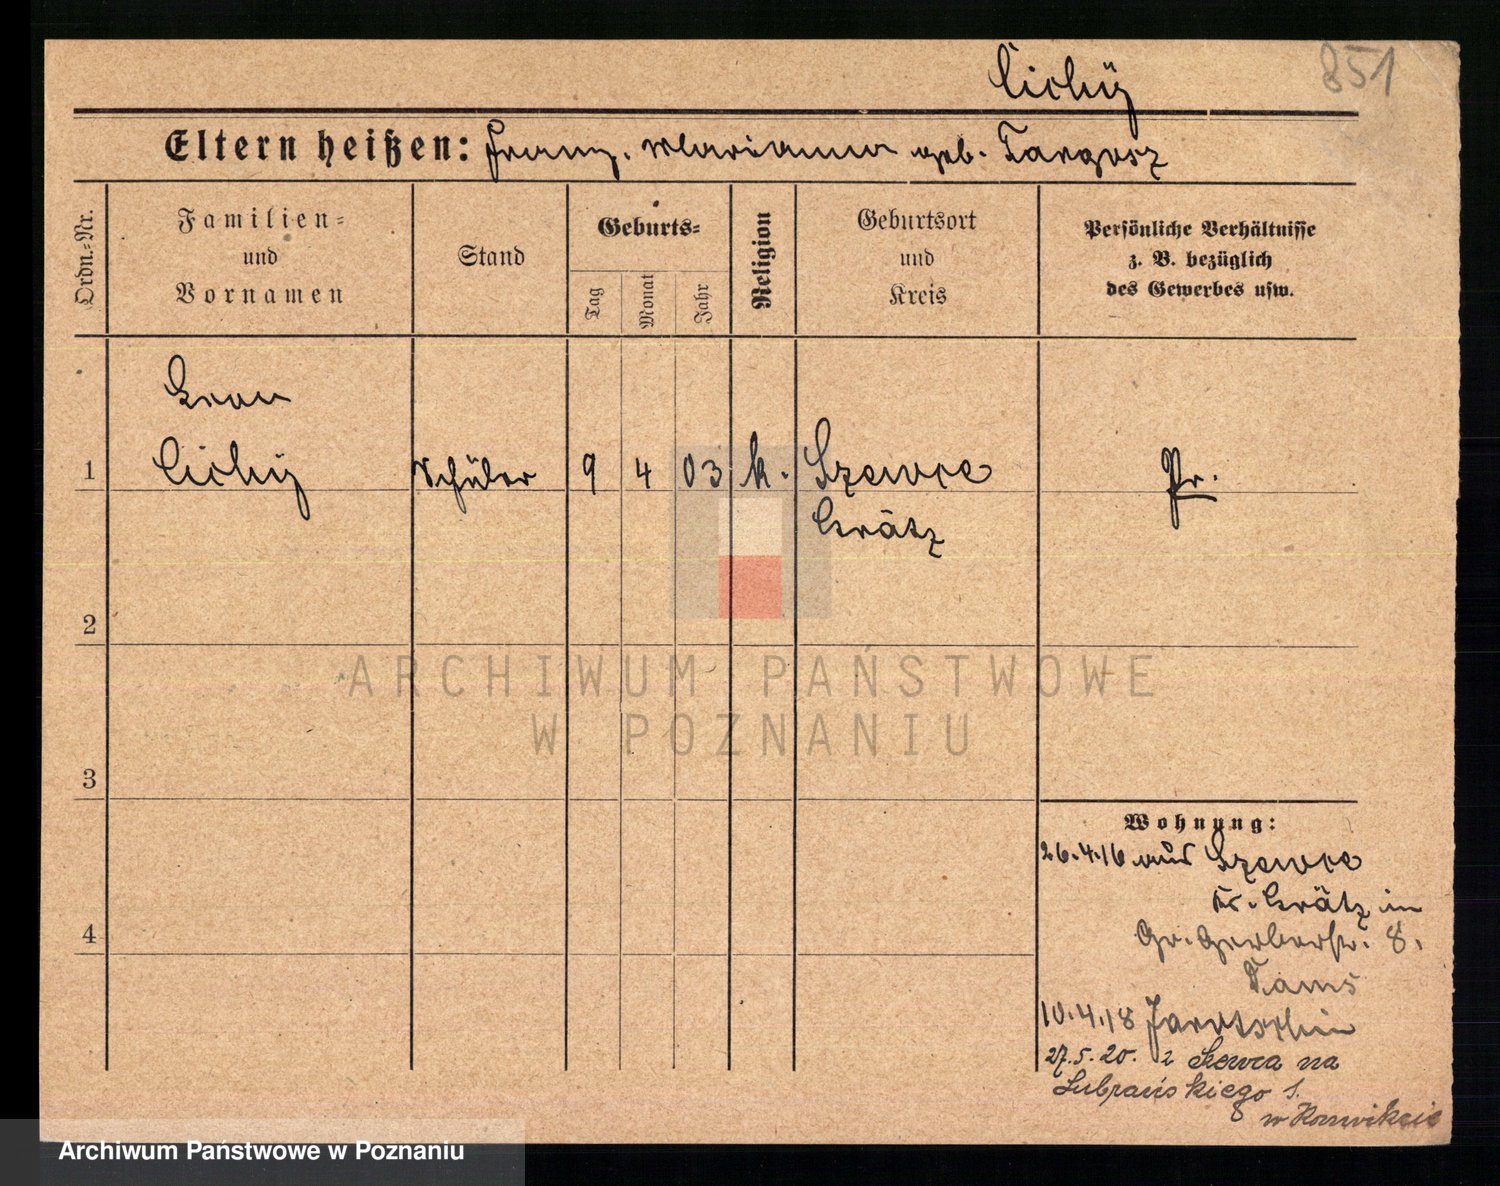 851
Cichÿ
Eltern heißen: Franz, Marianna geb. Targosz
Ordn.=Nr.
Familien=
und
Vornamen
Stand
Geburts=
Tag
Monat
Jahr
Religion
Geburtsort
und
Kreis
Persönliche Verhältnisse
z. B. bezüglich
des Gewerbes usw.
Leon
1 Cichÿ Schüler 9 4 03 k. Szewce Pr.
Grätz
2
3
4
Wohnung:
26.4.16 aus Szewce
Kr. Grätz in
Gr. Gerberstr. 8.
10.4.18 Jarotschin
27.5.20. z Szewca na
Lubrańskiego 1.
w Konwikcie
ARCHIWUM PAŃSTWOWE
W POZNANIU
Archiwum Państwowe w Poznaniu